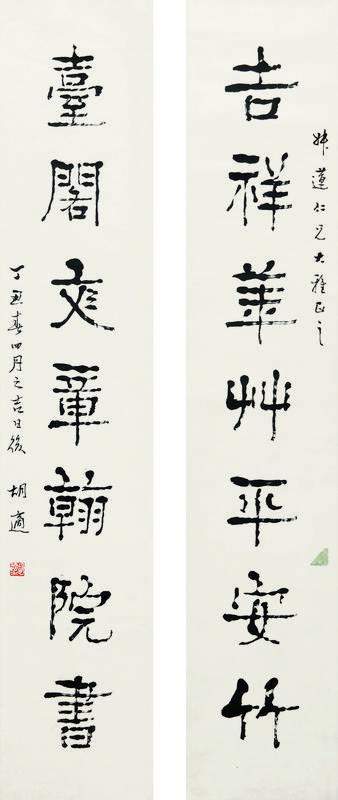 蓮仁兄大雅正之
吉祥華艸平安竹
臺閣彣章翰院書
丁丑春四月之吉日後 胡適